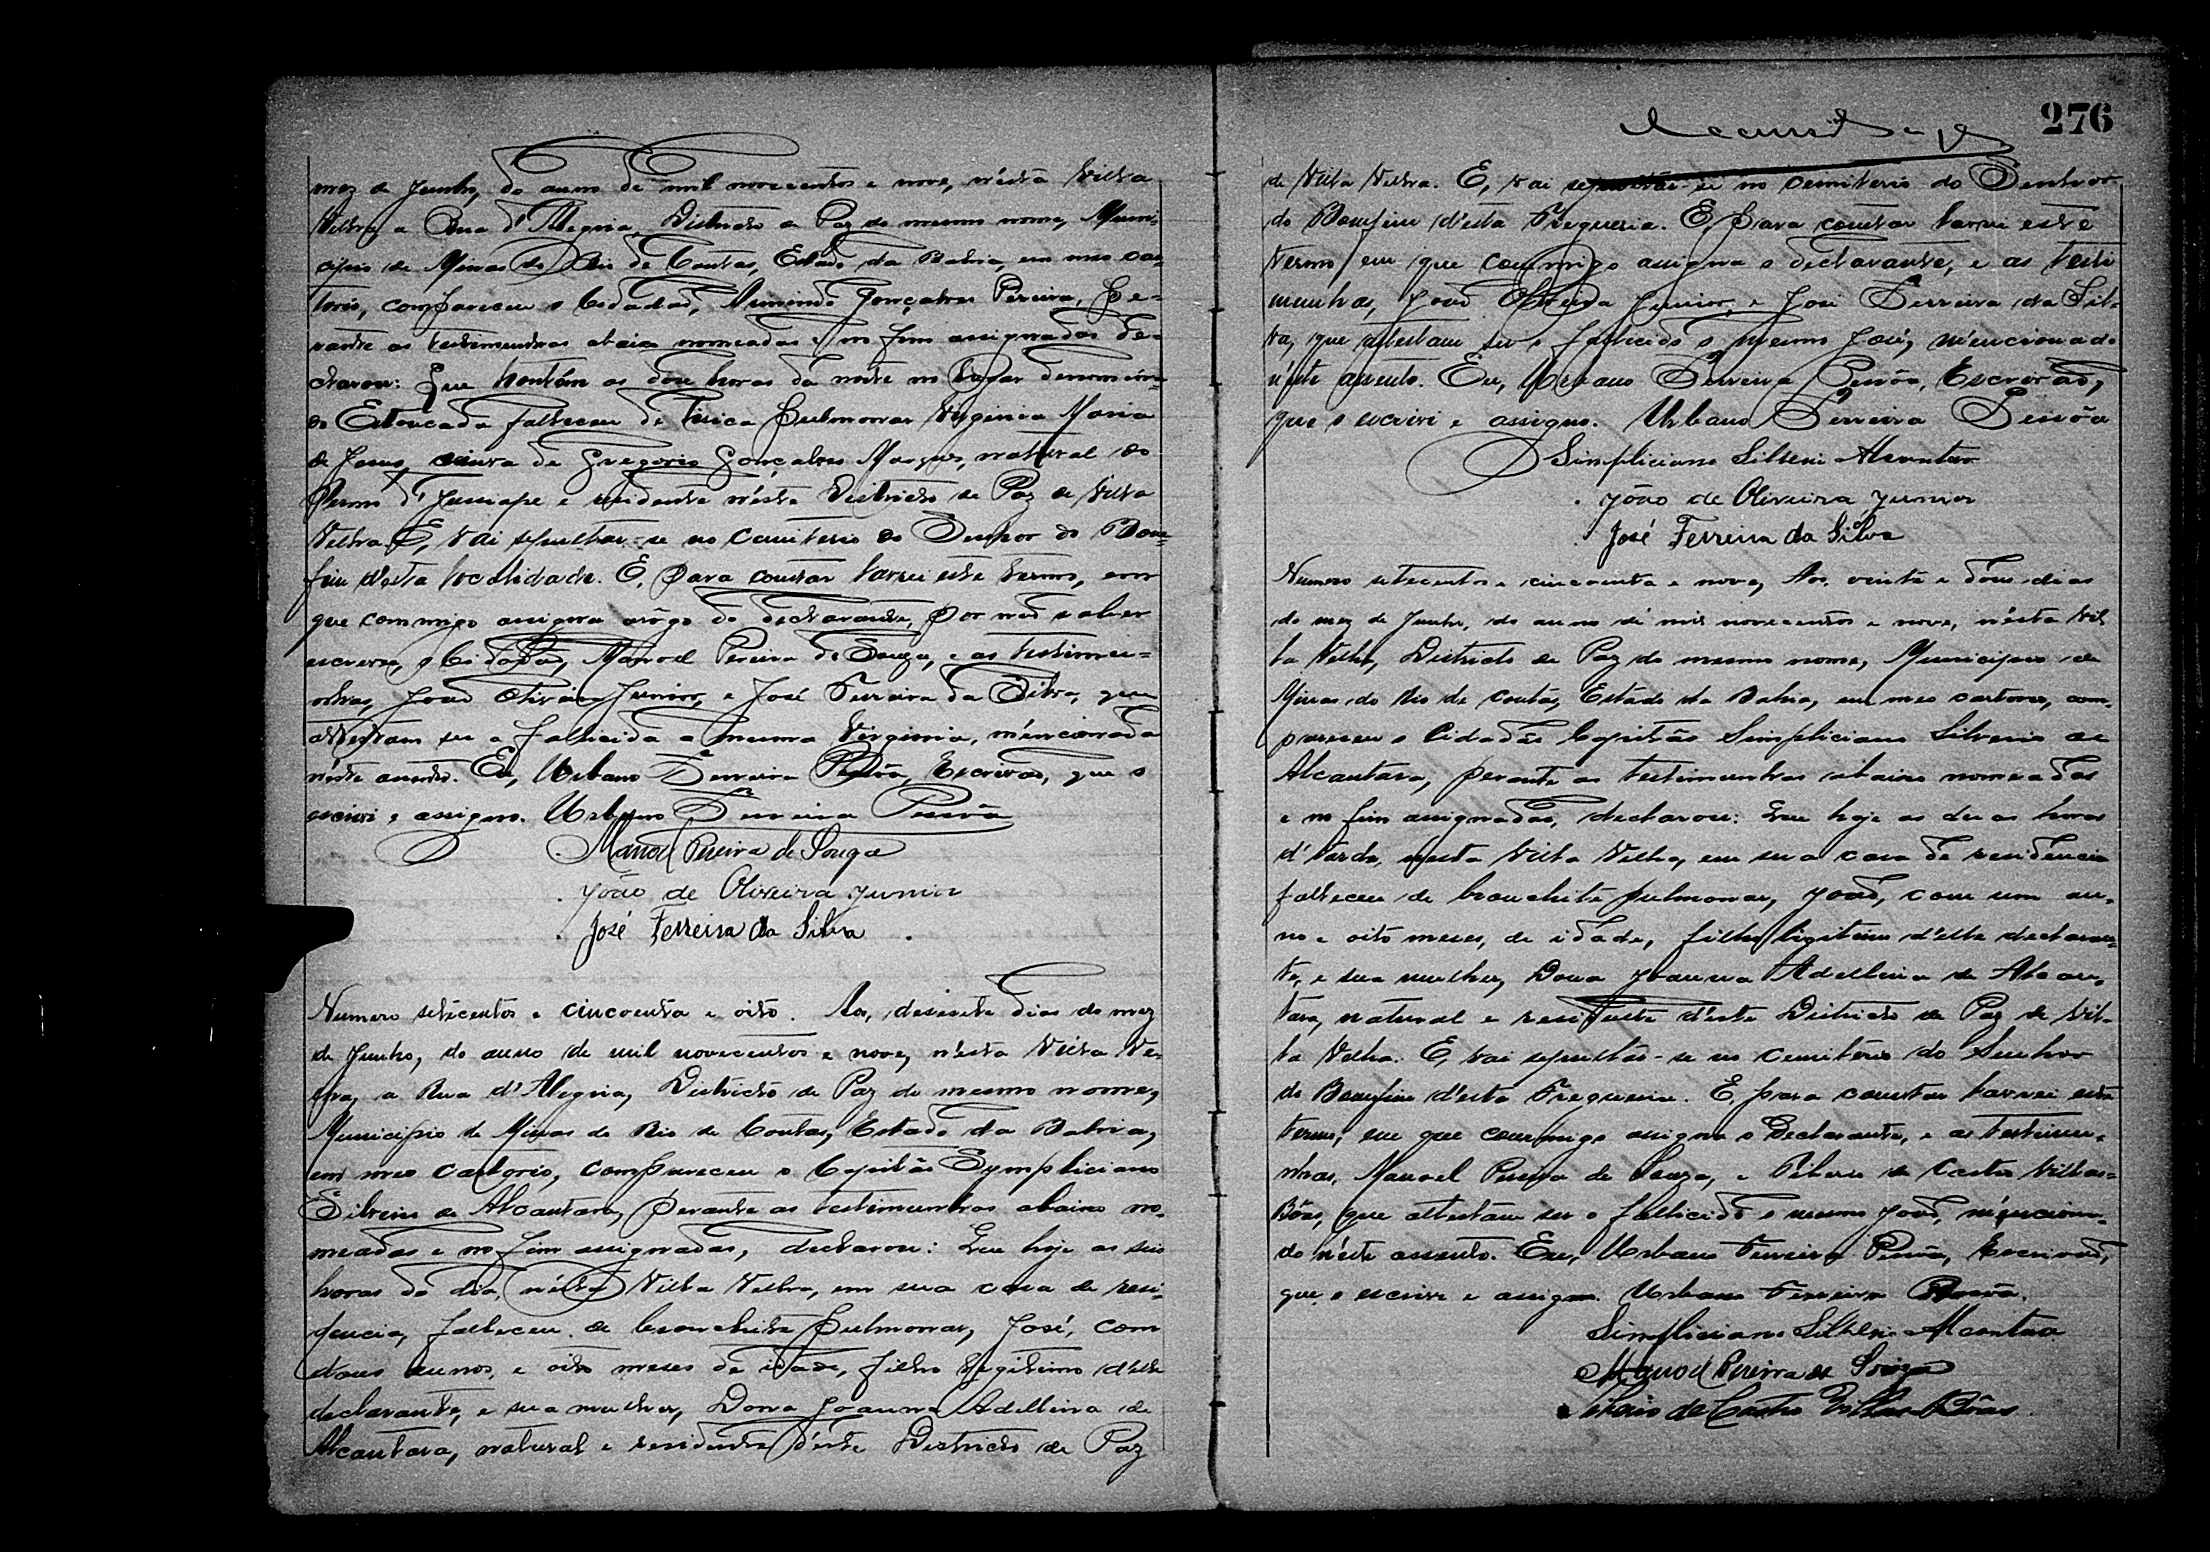 mez de Junho, do anno de mil novecentos e nove, n'esta Villa
Velha, a Rua d'Alegria, Districto de Paz do mesmo nome, Muni-
cipio de Minas do Rio de Contas, Estado da Bahia, em meo car-
torio, compareceu o Cidadão, Gonçalves Pereira, pe-
rante as testemunhas abaixo nomeadas e no fim assignadas de-
clarou: Que hontem as doze horas da noite no lugar denomina-
do Estoucada falleceu de Tisica pulmonar Virginia Maria
de Jesus, viuva de Gregorio Gonçalves Marques, natural do
Termo d' Jussiape e residente n'este Districto de Paz de Villa
Velha. E, vai sepultar-se no cemiterio do Senhor do Bom-
fim desta localidade. E, para constar lavrei este termo, em
que commigo assigna arôgo do declarante, por não saber
escrever, o Cidadão, Manoel Pereira de Souza, e as testimu-
nhas, João Oliveira Junior, e José Ferreira da Silva, que
attestam ser a fallecida a mesma Virginia, mencionada
n'este assento. Eu, Urbano Ferreira Pessôa, Escrivão, que o
escrivi e assigno. Urbano Ferreira Pessôa
Manoel Pereira de Souza
João de Oliveira Junior
José Ferreira da Silva
Numero setecentos e cincoenta e oito. Aos, desesete dias do mez
de Junho, do anno de mil novecentos e nove, n'esta Villa Ve-
lha, a Rua d'Alegria, Districto de Paz do mesmo nome,
Municipio de Minas do Rio de Contas, Estado da Bahia,
em meo cartorio, compareceu o Capitão Sympliciano
Silverio de Alcantara, perante as testimunhas abaixo no-
meadas e no fim assignadas, declarou: Que hoje as seis
horas do dia, n'esta Villa Velha, em sua casa de resi-
dencia, falleceu de bronchite pulmonar, José, com
dous annos, e oito meses de idade, filho legitimo d'elle
declarante, e sua mulher, Dona Joanna Adellina de
Alcantara, natural e residente d'este Districto de Paz
276
de Villa Velha. E, vai sepultar-se no cemiterio do Senhor
do Bomfim d'esta Freguesia. E, para constar lavrei este
termo, em que commigo assigna o declarante, e as testi
munhas, João Oliveira Junior, e José Ferreira da Sil-
va, que attestam ser o fallecido o mesmo José, mencionado
n'este assento. Eu, Urbano Ferreira Pessôa, Escrivão,
que o escrivi e assigno. Urbano Ferreira Pessôa
Simpliciano Silverio Alcantara
João de Oliveira Junior
José Ferreira da Silva
Numero setecentos e cincoenta e nove, Aos, vinte e dous dias
do mez de Junho, do anno de mil novecentos e nove, n'esta Vil
la Velha, Districto de Paz do mesmo nome, Municipio de
Minas do Rio de Contas, Estado da Bahia, em meo cartorio, com-
pareceu o Cidadão Capitão Simpliciano Silverio de
Alcantara, perante as testimunhas abaixo nomeadas
e no fim assignadas, declarou: Que hoje as duas horas
d' tarde, n'esta Villa Velha, em sua casa de residencia
falleceu de bronchite pulmonar, João, com um an-
no e oito meses, de idade, filho ligitimo d'elle declaran-
te, e sua mulher, Dona Joanna Adellina de Alcan-
tara, natural e residente d'este Districto de Paz de Vil-
la Velha. E, vai sepultar-se no cemiterio do Senhor
do Bomfim d'esta Freguesia. E, para constar lavrei este
termo, em que commigo assigna o Declarante, e as testimu-
nhas, Manoel Pereira de Souza, e de Castro Villas-
Bôas, que attestam ser o fallecido o mesmo João, menciona-
do n'este assento. Eu, Urbano Ferreira Pessôa, Escrivão,
que o escrivi e assigno. Urbano Ferreira Pessôa.
Simpliciano Silverio Alcantara
Manoel Pereira de Souza
de Castro Villas-Bôas